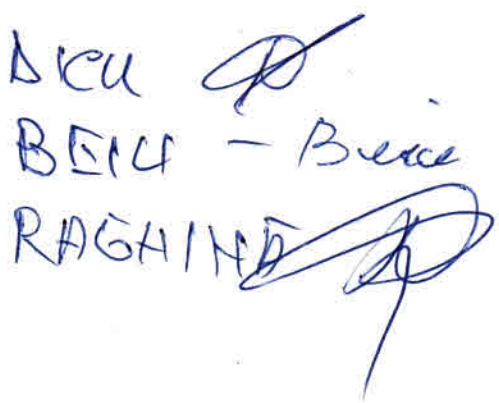 DICU
BEIU - Beiu
RAGHINĂ